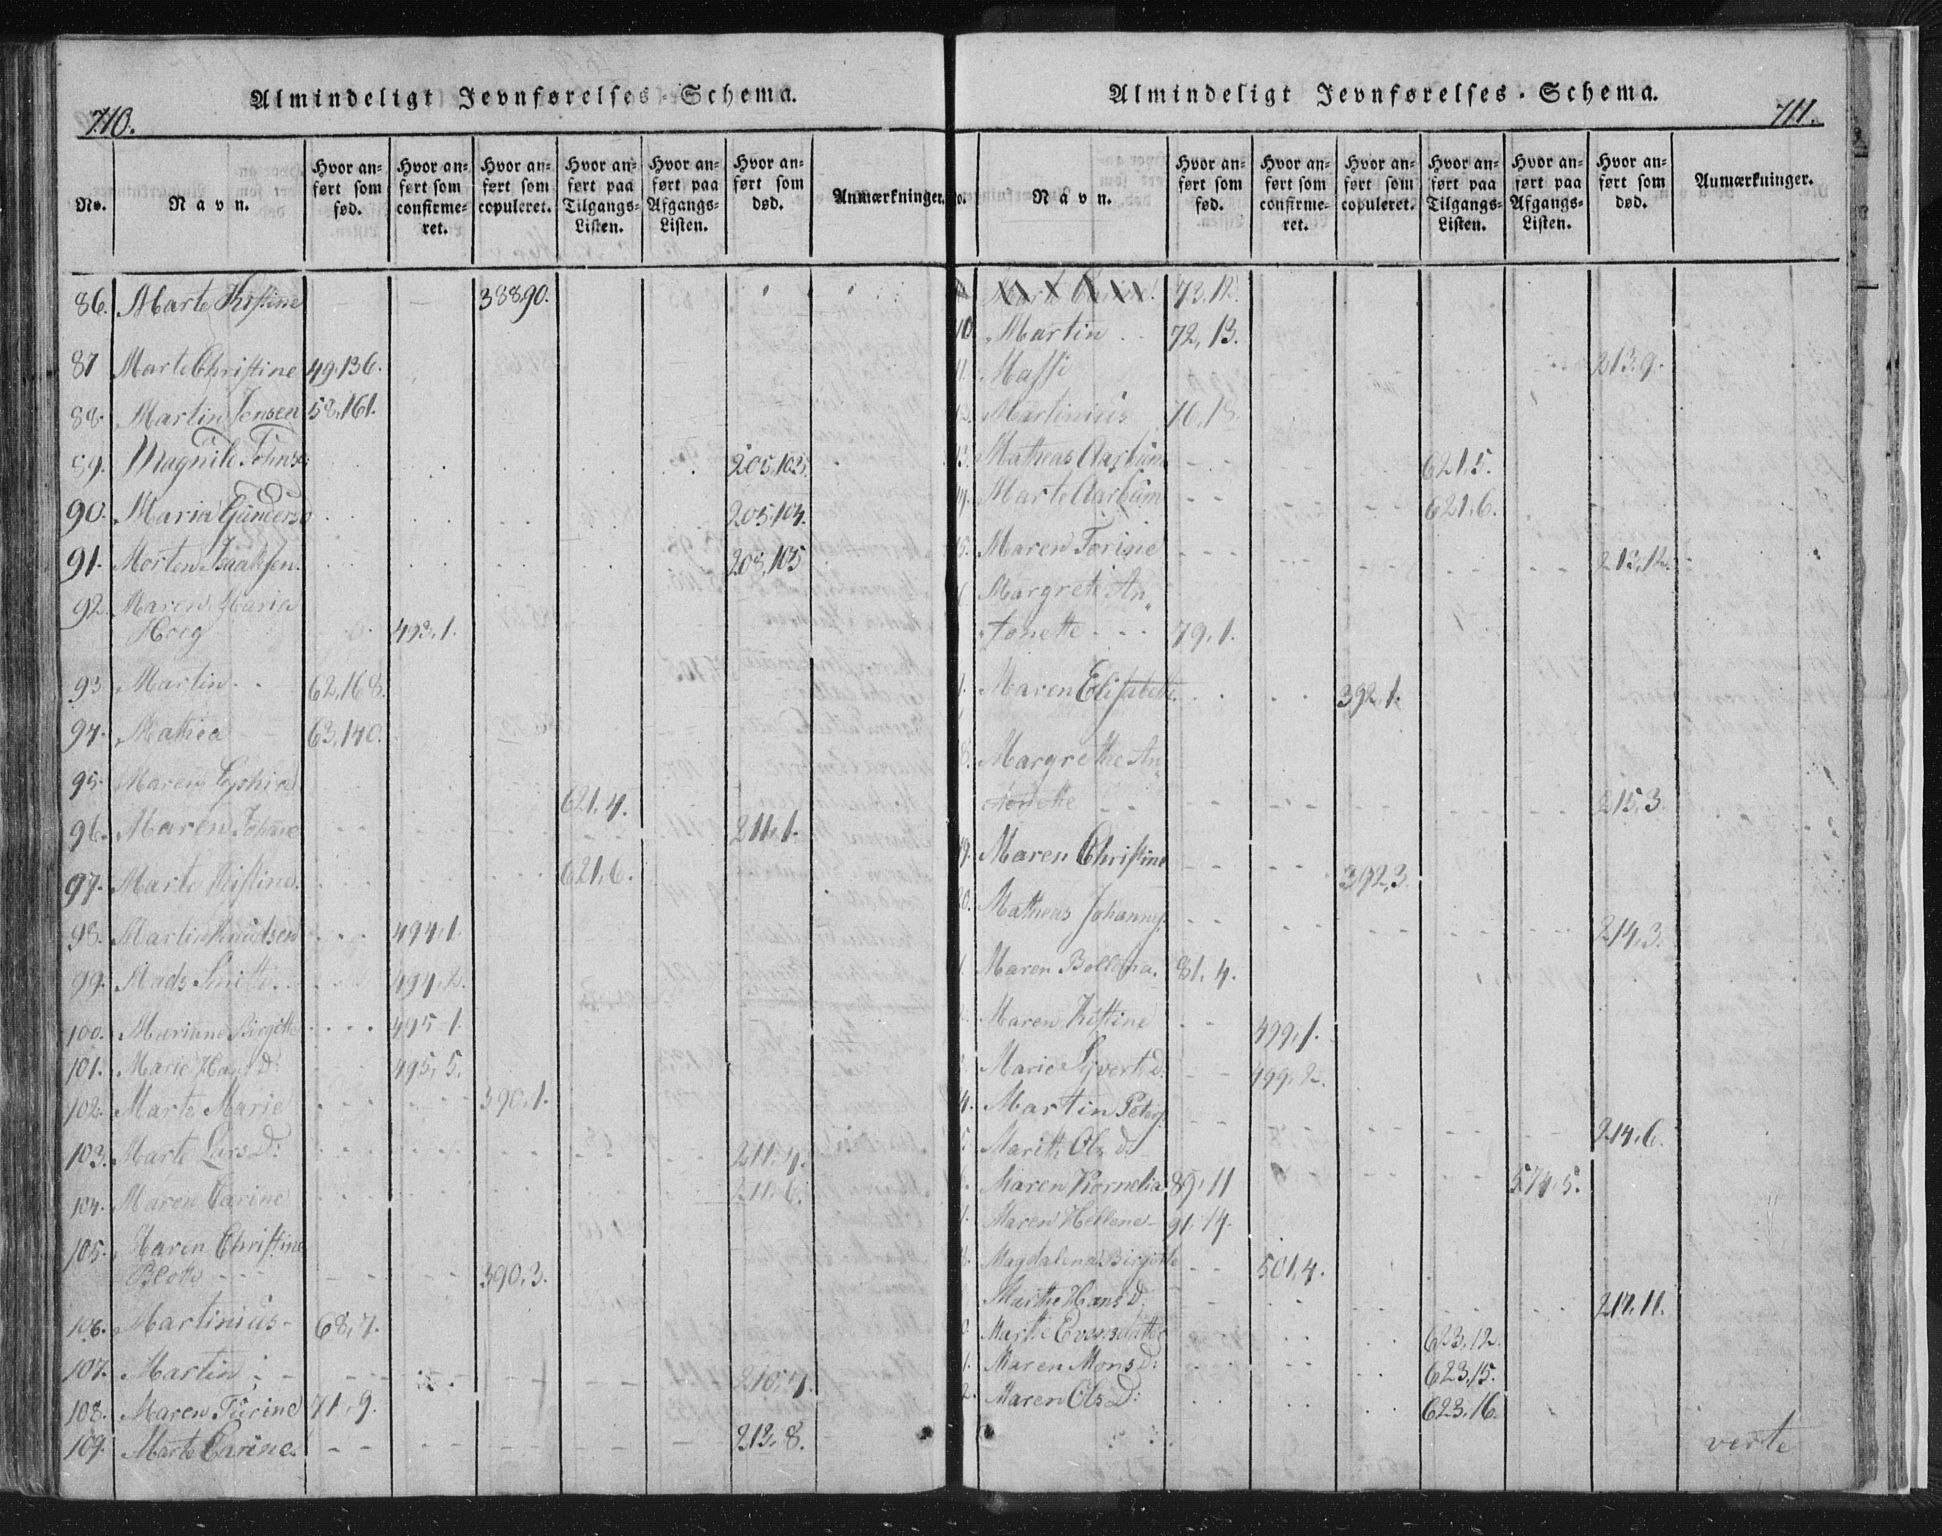 710.
Almindeligt Jevnførelses-Schema.
No. Navn. Hvor anført som fød. Hvor anført som confirmeret. Hvor anført som copuleret. Hvor anført paa Tilgangs-Listen. Hvor anført paa Afgangs-Listen. Hvor anført som død. Anmærkninger.
86. Marte Kistine 388 90.
87 Marte Christine 49,136.
88. Martin Jensen 58,161.
89. Magnild Johns 205,102
90. Maria Gunders 205,104.
91. Morten Isaaksen. 208,105
92. Maren Maria
Horg 493,1.
93 Martin 62,168.
94. Mathea 63,140.
95. Maren 621,4.
96. Maren Johane 211,1.
97. Marte Kistine. 621,6.
98. Martin Knudsen 494,1.
99. Mads Smith 494,2.
100. Mariane Birgitte 495,1.
101. Marie Hans D: 495,5.
102. Marte Marie 390,1.
103. Marte Lars D: 211,4.
104. Maren Karine 211,6.
105. Maren Christine
390,3.
106. Martinius 68,7.
107. Martin 210,7.
108. Maren Turine 71,9.
109. Marte Carine. 212,8.
711.
Almindeligt Jevnførelses-Schema.
No. Navn. Hvor anført som fød. Hvor anført som confirmeret. Hvor anført som copuleret. Hvor anført paa Tilgangs-Listen. Hvor anført paa Afgangs-Listen. Hvor anført som død. Anmærkninger.
72,12.
10. Martin 72,13.
11. Massi 213,9.
12. Martinius 76,18.
13. Matheas Aarbum 621,5.
14. Marte Aarbum 621,6.
15. Maren Torine 213,12.
Margrete An-
tonette 79,1.
Maren Elisabeth 392,1.
8. Margrethe An-
tonette 215,3.
19. Maren Christine 392,3.
20. Matheas Johannes 214,3.
1. Maren Bollona. 81,4.
Maren Kistine 499,1.
Marie Syvert d. 499,2.
4. Martin Peters
5. Marith Ols d. 214,6.
Maren Kornelia 89,11 574,5.
Maren Hellene 91,14.
Magdalena Birgitte 501,4.
Marthe Hans d: 217,11.
Marthe Evensdatter 623,12.
1. Maren Mons D: 623,15.
2. Maren Ols D: 623,16.
verte